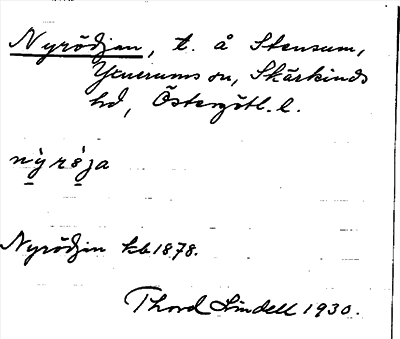 Nyrödjan, t. å Stensum,
Yxnerums sn, Skärkinds
hd, Östergötl. l.
nỳrö̀ja
Nyrödjin kb 1878.
Thord Lindell 1930.